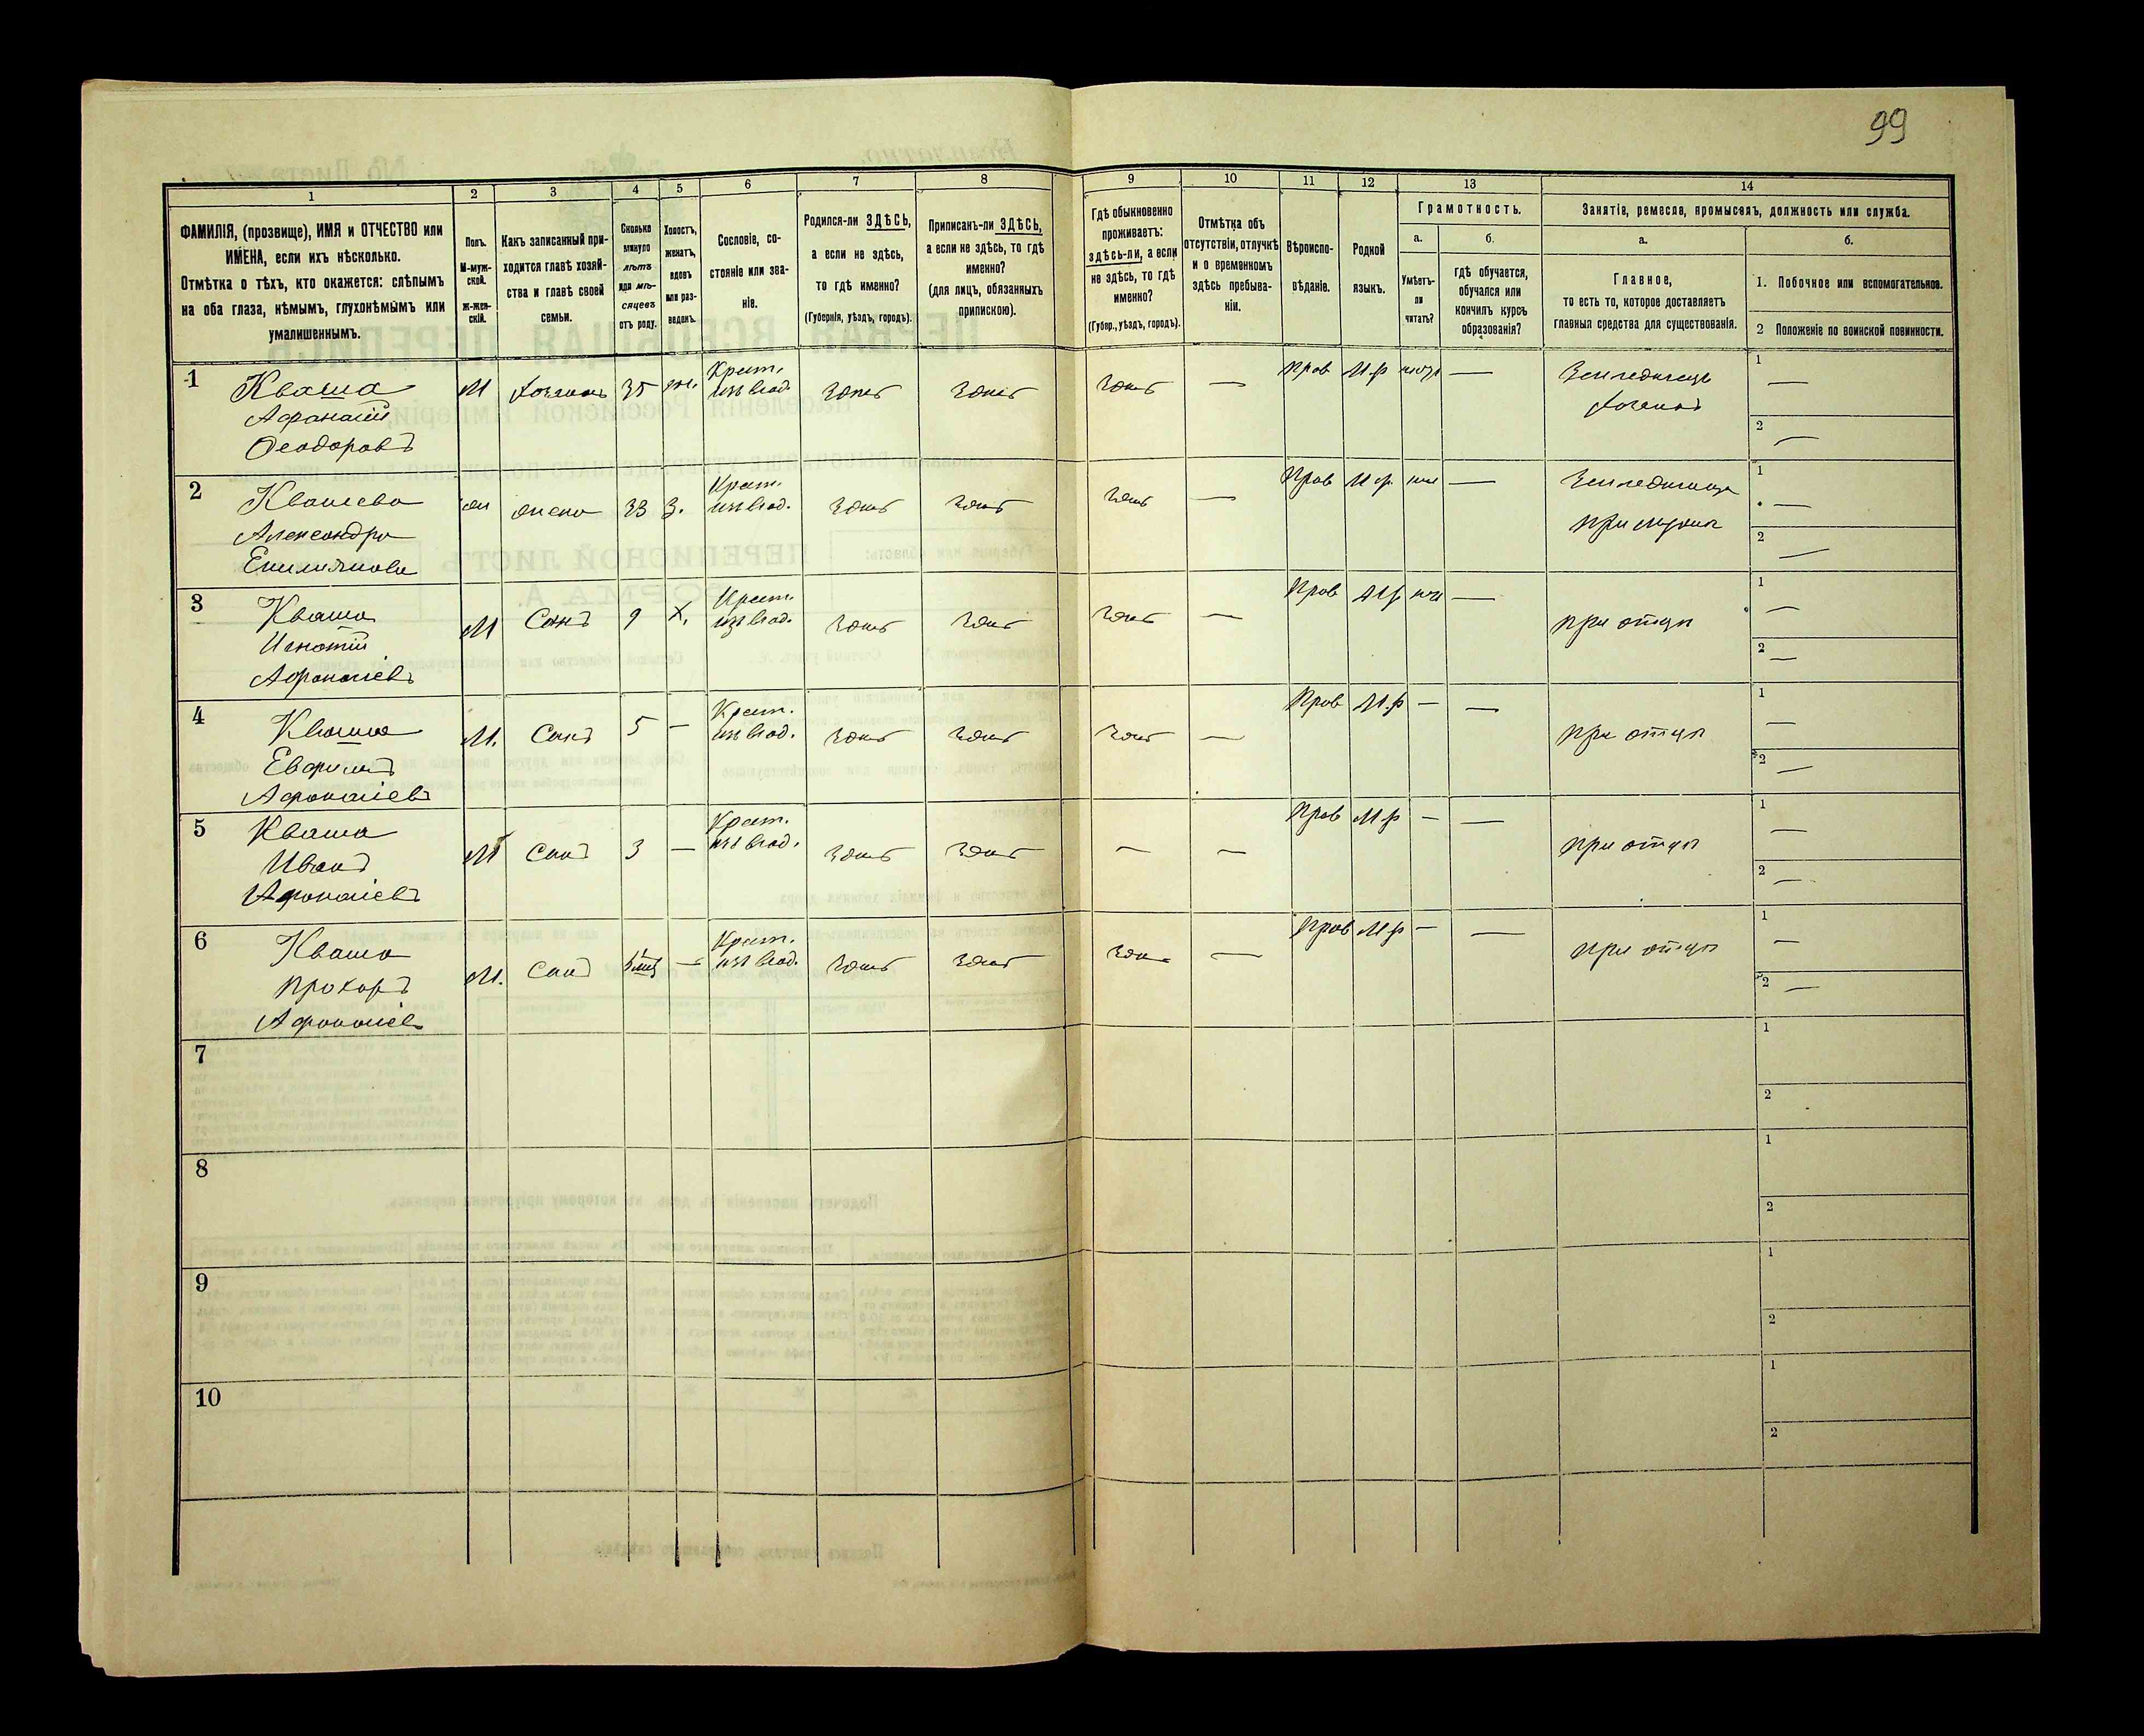 99
1 2 3 4 5 6 7 8 9 10 11 12 13 14
ФАМИЛІЯ, (прозвище), ИМЯ и ОТЧЕСТВО или
ИМЕНА, если ихъ нѣсколько.
Отмѣтка о тѣхъ, кто окажется: слѣпымъ
на оба глаза, нѣмымъ, глухонѣмымъ или
умалишеннымъ.
Полъ.
М-муж-
ской.
Ж-жен-
скій.
Какъ записанный при-
ходится главѣ хозяй-
ства и главѣ своей
семьи.
Сколько
минуло
лѣтъ
или мѣ-
сяцевъ
отъ роду.
Холостъ,
женатъ,
вдовъ
или раз-
веденъ.
Сословіе, со-
стояніе или зва-
ніе.
Родился-ли ЗДѢСЬ,
а если не здѣсь,
то гдѣ именно?
(Губернія, уѣздъ, городъ).
Приписанъ-ли ЗДѢСЬ,
а если не здѣсь, то гдѣ
именно?
(для лицъ, обязанныхъ
припискою).
Гдѣ обыкновенно
проживаетъ:
здѣсь-ли, а если
не здѣсь, то гдѣ
именно?
(Губер., уѣздъ, городъ).
Отмѣтка объ
отсутствіи, отлучкѣ
и о временномъ
здѣсь пребыва-
ніи.
Вѣроиспо-
вѣданіе.
Родной
языкъ.
Грамотность.
а.
Умѣетъ-
ли
читать?
б.
гдѣ обучается,
обучался или
кончилъ курсъ
образованія?
Занятіе, ремесло, промыселъ, должность или служба.
а.
Главное,
то есть то, которое доставляетъ
главныя средства для существованія.
б.
1. Побочное или вспомогательное.
2 Положеніе по воинской повинности.
1 Кваша М хозяинъ 35 жен. Крест. здѣсь здѣсь здѣсь — Пров М.р — Земледѣлецъ 1 —
Афанасій изъ влад. хозяинъ
Ѳеодоровъ 2 —
2 Квашева жена 33 З. Крест. здѣсь здѣсь здѣсь — Пров М.р. — 1 —
Александра изъ влад. при мужѣ
Емильянова 2 —
3 Кваша М Сынъ 9 Х. Крест. здѣсь здѣсь здѣсь — Пров М.р — при отцѣ 1 —
Игнатій изъ влад.
Афанасіевъ 2 —
4 Кваша М. Сынъ 5 — Крест. здѣсь здѣсь здѣсь — Пров М.р — — при отцѣ 1 —
Евфимъ изъ влад.
Афанасіевъ 2 —
5 Кваша М Сынъ 3 — Крест. здѣсь здѣсь — — Пров М.р — — при отцѣ 1 —
Иванъ изъ влад.
Афанасіевъ 2 —
6 Кваша М. Сынъ — Крест. здѣсь здѣсь здѣсь — Пров М.р — — при отцѣ 1 —
Прохоръ изъ влад.
Афанасіевъ 2 —
7 1
2
8 1
2
9 1
2
10 1
2